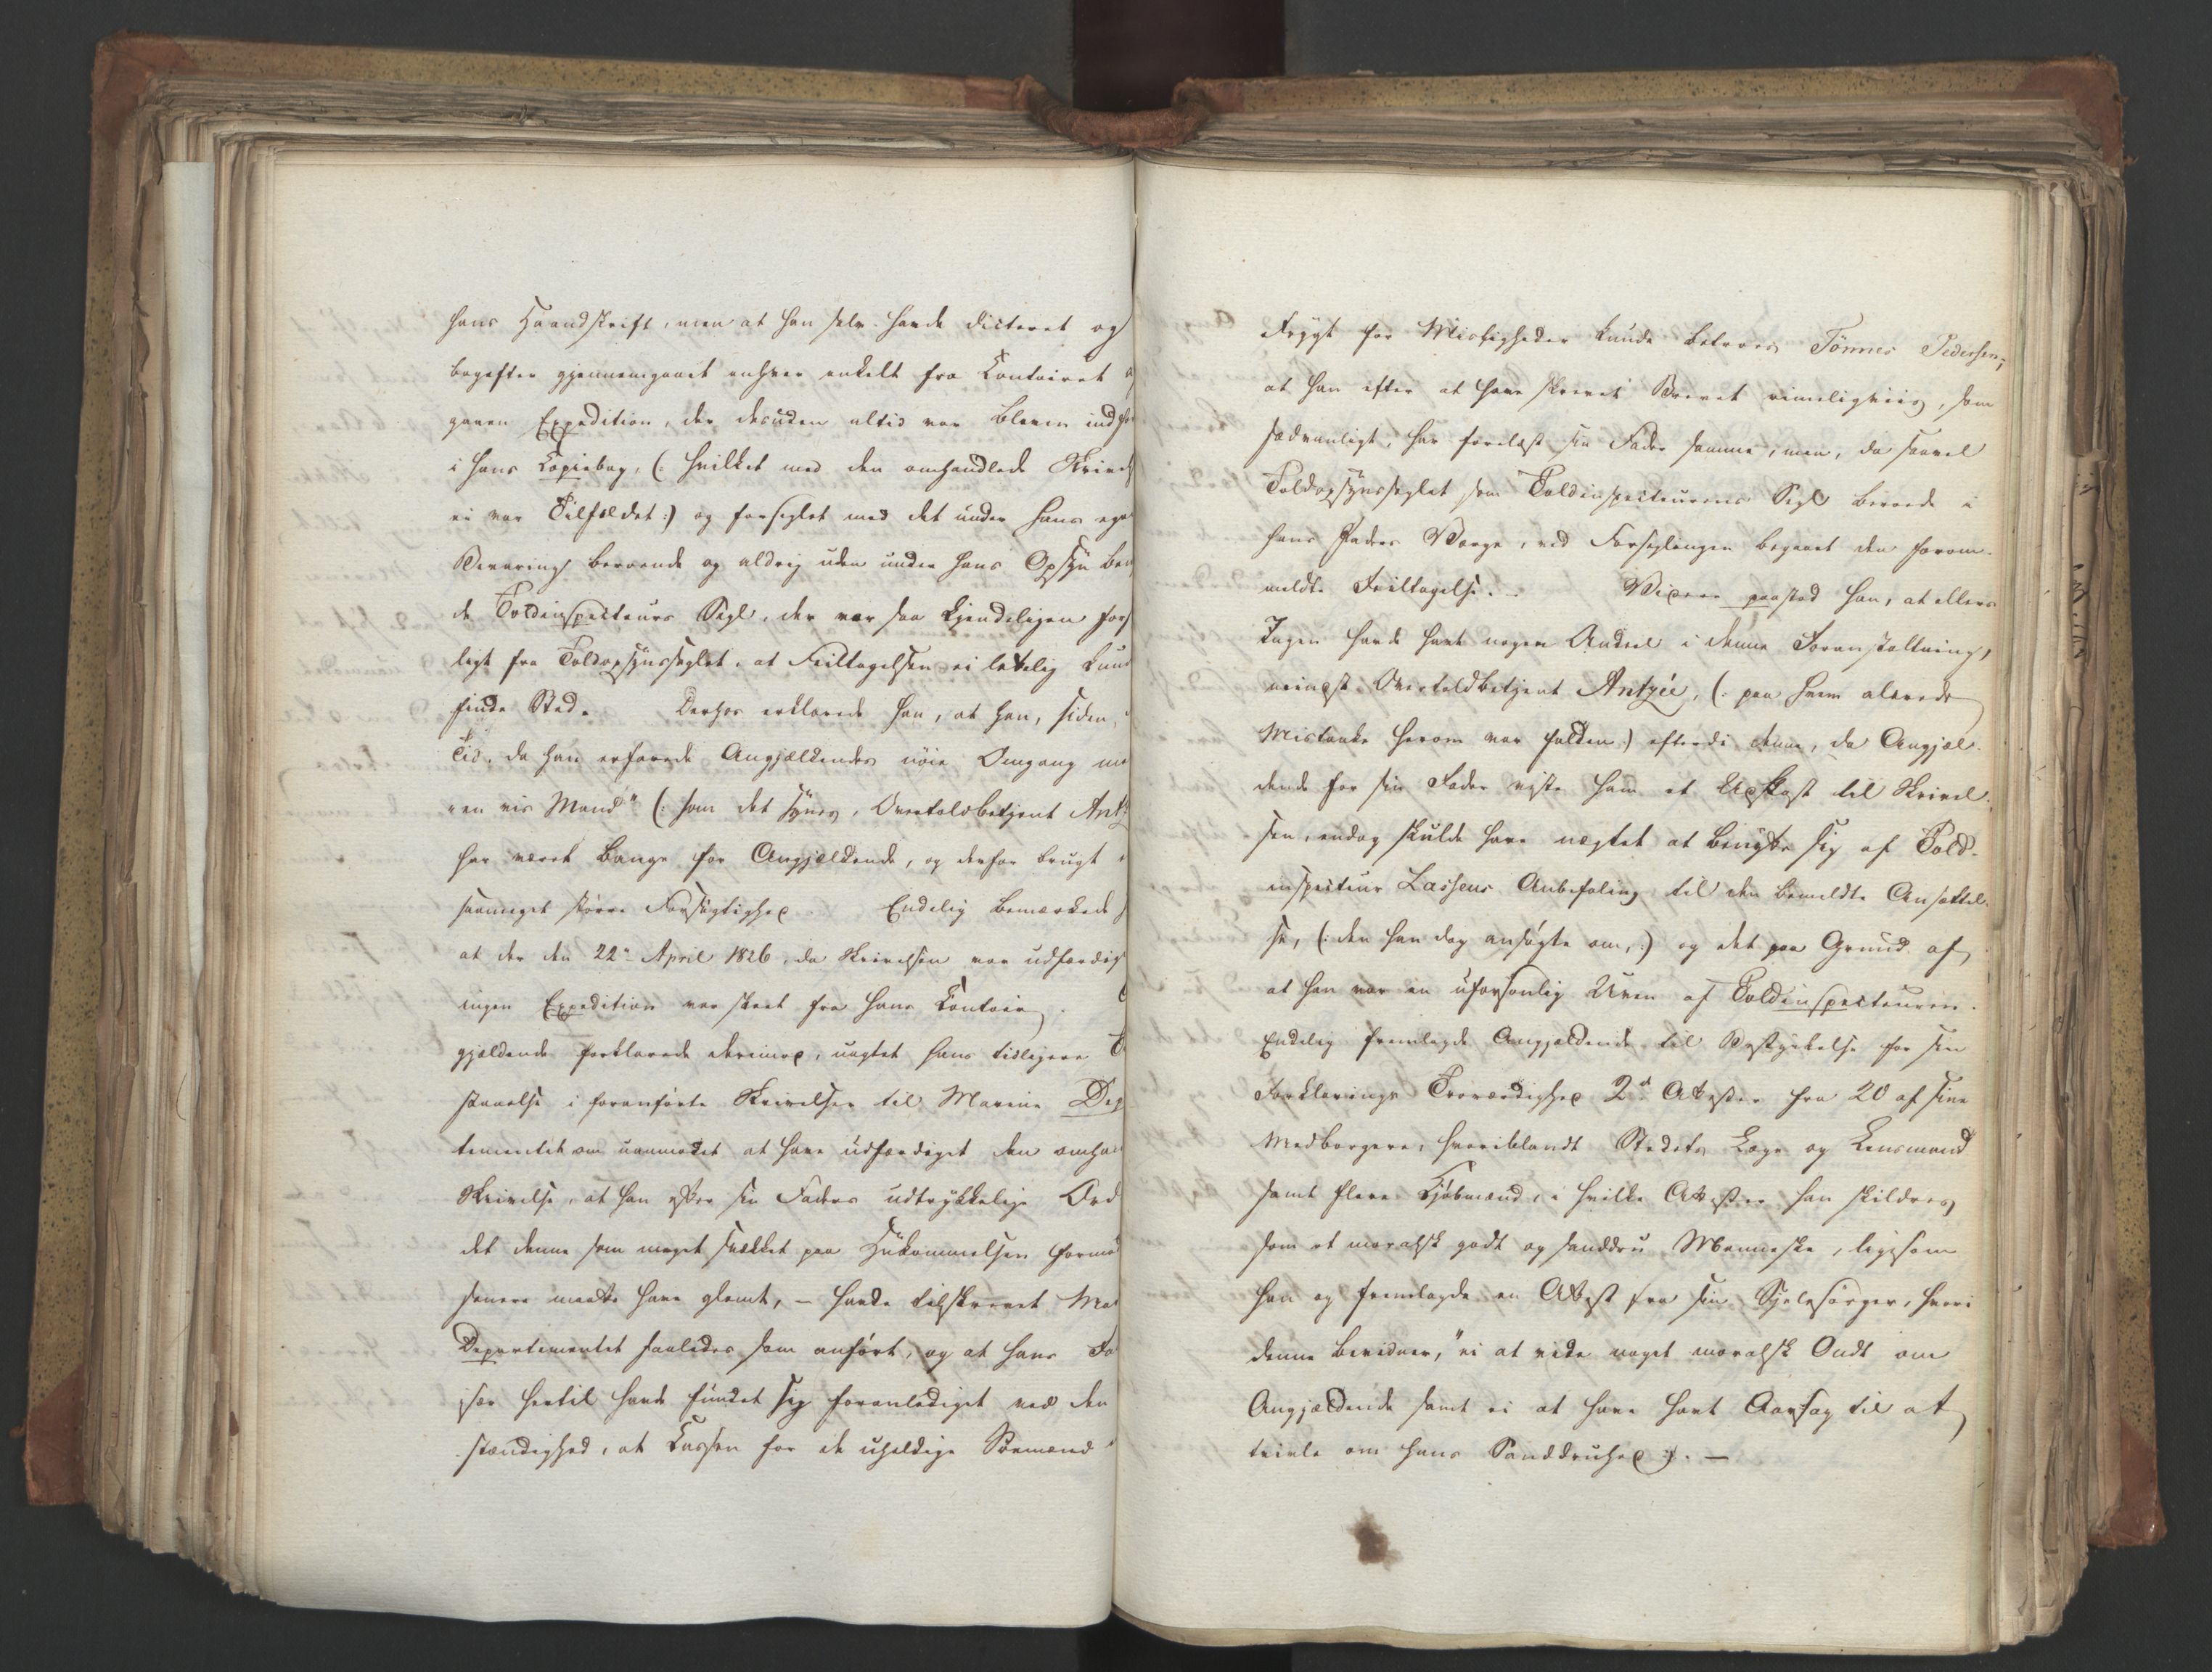 hans Haandskrift, men at han selv havde dicteret og
bagefter gjennemgaaet enhver enkelt fra Contoiret
gaaen Expedition, der desuden altid var bleven indf
i hans Copiebog, (: hvilket med den omhandlede Skrivel
ei var Tilfældet :) og forseglet med det under hans egen
Bevaring beroende og aldrig uden under hans Opsyn ben
de Toldinspecteurs Segl, der var saa kjendeligen forsk
ligt fra Toldopsynsseglet, at Feiltagelsen ei letelig kund
finde Sted. Derhos erklærede han, at han, siden
Tid, da han erfarede Angjældendes nöie Omgang me
"en vis Mand" (: som det synes, Overtoldbetjent Antz
har været bange for Angjældende, og derfor brugt
saameget större Forsigtighed. Endelig bemærkede
at der den 22de April 1826, da Skrivelsen var udfærdig
ingen Expedition var skeet fra hans Contoir.
gjældende forklarede derimod, uagtet hans tidligere
staaelse i foranförte Skrivelse til Marine Dep
tementet om uanmodet at have udfærdiget den omha
Skrivelse, at han efter sin Faders udtrykkelige Ord
det denne som meget svækket paa Hukommelsen formo
senere maatte have glemt, – havde tilskrevet Mar
Departementet saaledes som anfört, og at hans Fa
især hertil havde fundet sig foranlediget ved den
stændighed, at Lassen for de uheldige Sömænd
Frygt for Misligheder kunde betroes Tönnes Pedersen;
at han efter at have skrevet Brevet rimeligviis, som
sædvanligt, har forelæst sin Fader samme, men, da saavel
Toldopsynsseglet som Toldinspecteurens Segl beroede i
hans Faders Værge, ved Forseglingen begaaet den forom-
meldte Feiltagelse. Videre paastod han, at ellers
Ingen havde havt nogen Andeel i denne Foranstaltning,
mindst Overtoldbetjent Antzée, (: paa hvem allerede
Mistanke herom var falden :) efterdi denne, da Angjæl-
dende for sin Fader viste ham et Udkast til Skrivel-
sen, endog skulde have nægtet at benytte sig af Told-
inspecteur Lassens Anbefaling til den bemeldte Ansættel-
se, (: den han dog ansögte om, :) og det paa Grund af,
at han var en uforsonlig Uven af Toldinspecteuren.
Endelig fremlagde Angjældende til Bestyrkelse for sin
Forklarings Troværdighed 2de Attester fra 20 af sine
Medborgere, hvoriblandt Stedets Læge og Lensmand
samt flere Kjöbmænd, i hvilke Attester han skildres
som et moralsk godt og sanddru Menneske, ligesom
han og fremlagde en Attest fra sin Sjælesörger, hvori
denne bevidner, "ei at vide noget moralsk Ondt om
Angjældende samt ei at have havt Aarsag til at
tvivle om hans Sanddruhed". –